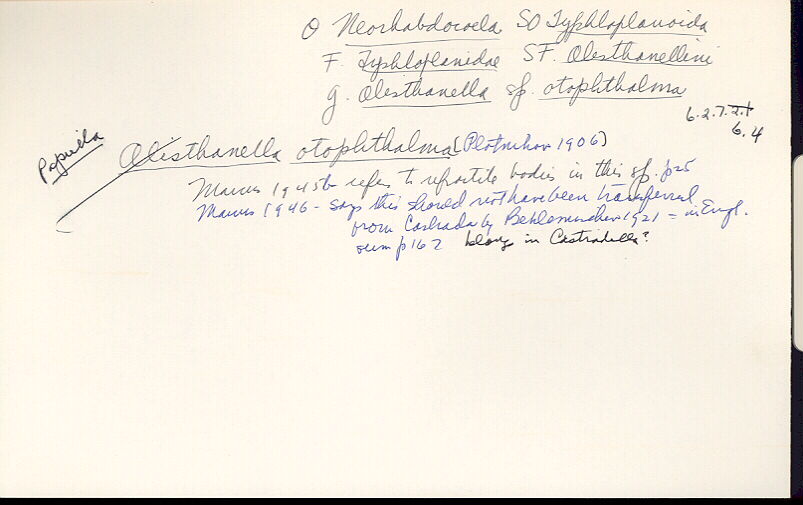 O Neorhabdocoela SO Typhloplanoida
F. Typhloplanidae SF. Olisthanellini
g. Olisthanella sp. otophthalma
6.2.7.2.1
6.4
Papiella
Olisthanella otophthalma (Plotnikov 1906)
Marcus 1945b refers to refractile bodies in this sp. p25
Marcus 1946 - says this should not have been transferred
from Castrada by Beklemischev 1921 = in Engl.
summ p162 belong in Castradella?